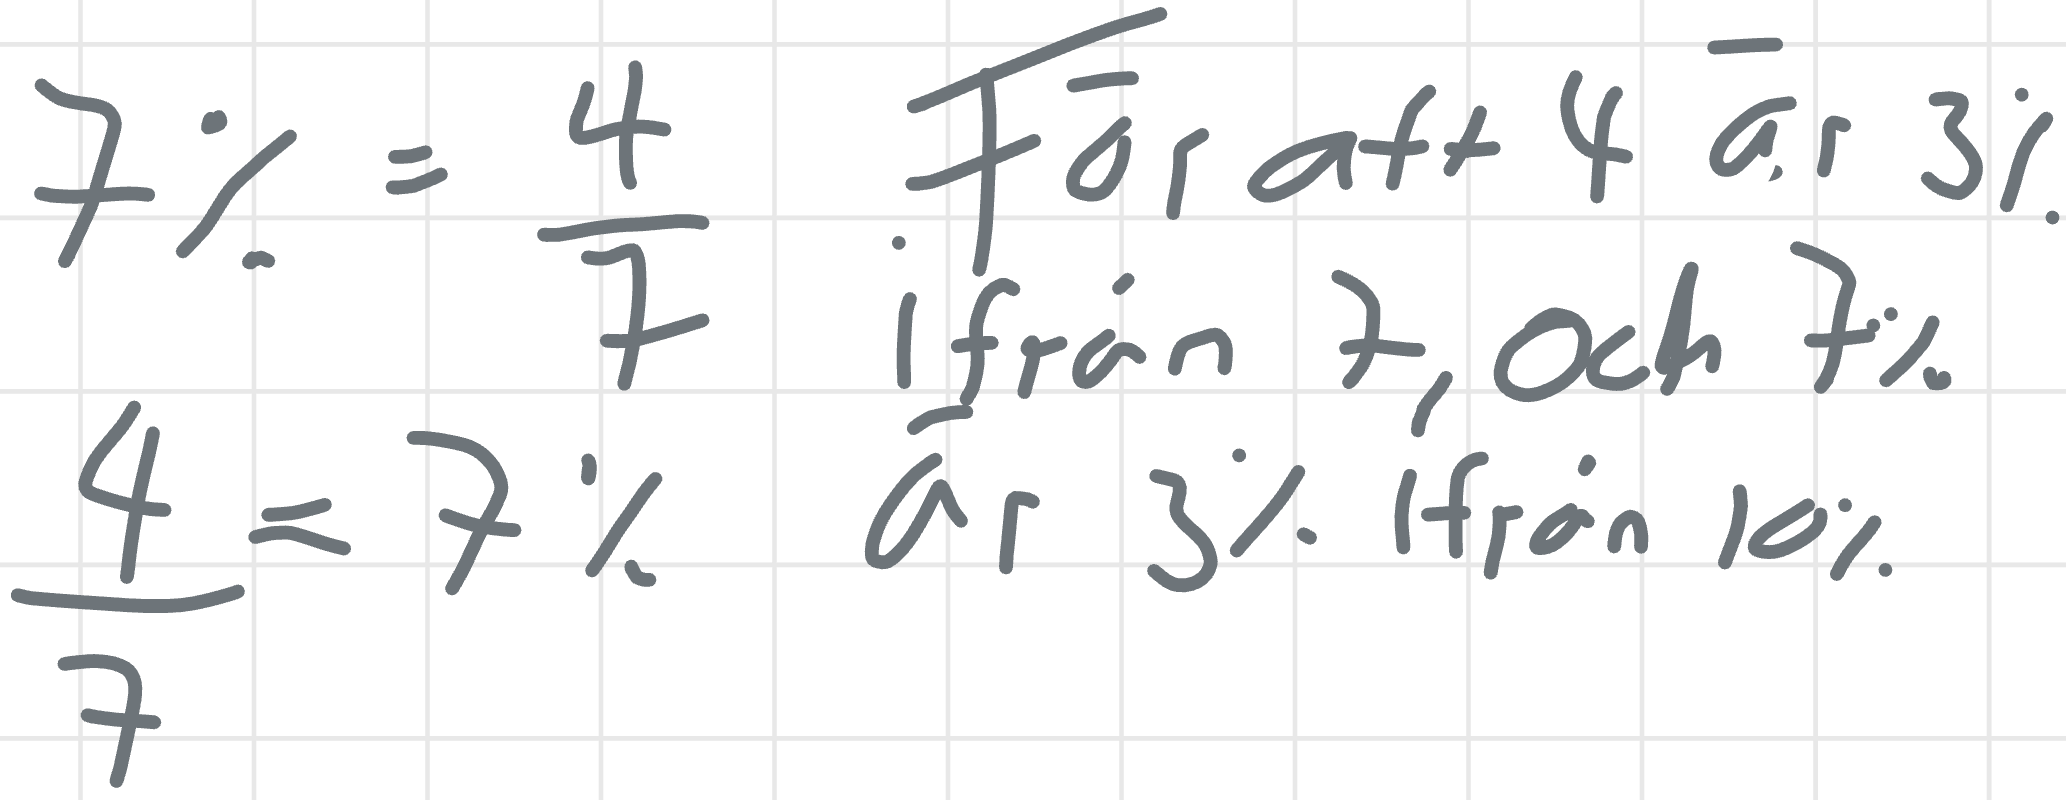 7% = 4/7
4/7 = 7%
För att 4 är 3%
ifrån 7, och 7%
är 3% ifrån 10%